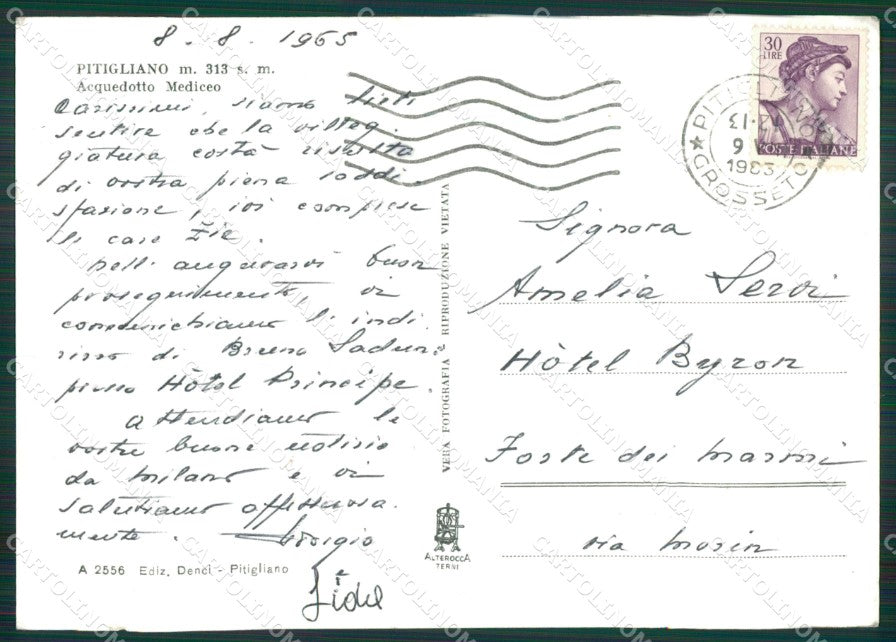 8. 8. 1965
PITIGLIANO m. 313 s. m.
Acquedotto Mediceo
Carissimi, siamo lieti
sentire che la villeg.
giatura costà risulta
di vostra piena soddi
sfazione, ivi comprese
le care Zie.
Nell' augurarvi buon
proseguimento, vi
comunichiamo l' indi
rizzo di Bruno Sadun:
presso Hôtel Principe.
Attendiamo le
vostre buone notizie
da Milano e vi
salutiamo affettuosa.
mente. Giorgio
A 2556 Ediz. Denci - Pitigliano
VERA FOTOGRAFIA RIPRODUZIONE VIETATA
ALTEROCCA
TERNI
30
LIRE
POSTE ITALIANE
PITIGLIANO
GROSSETO
Signora
Amelia Servi
Hôtel Byron
Forte dei Marmi
via Morin
CARTOLINOMANIA